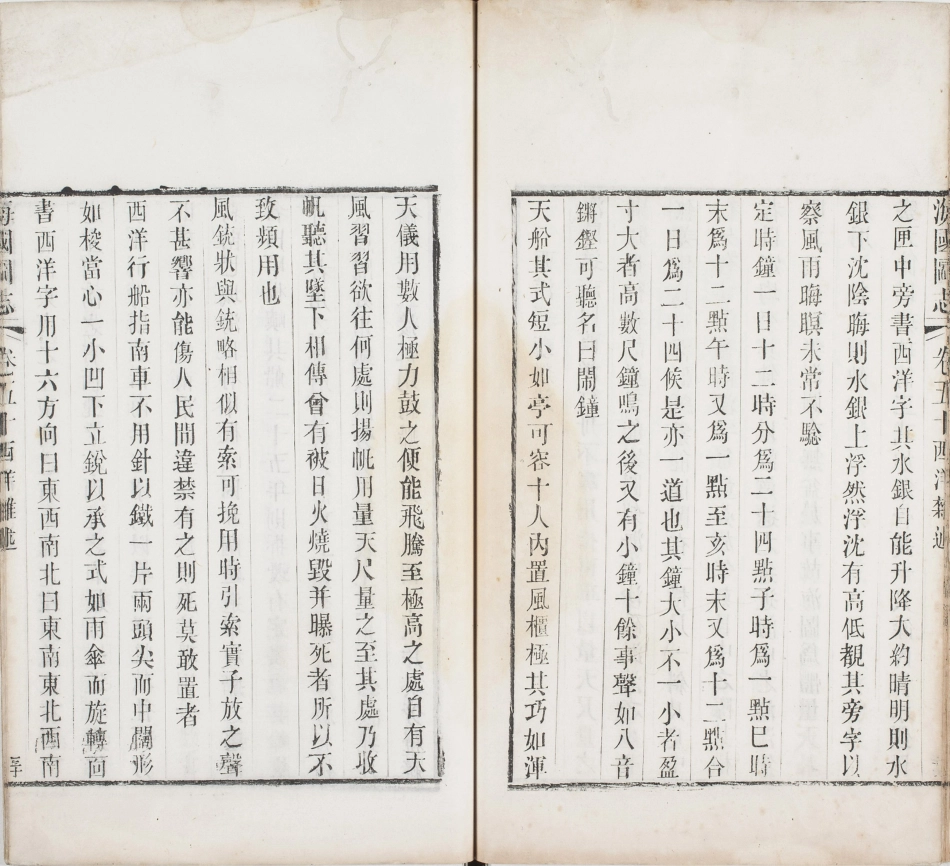 海國圖志 卷五十 西洋雜述
之匣中旁書西洋字其水銀自能升降大約晴明則水
銀下沈陰晦則水銀上浮然浮沈有高低観其旁字以
察風雨晦暝未常不驗
定時鐘一日十二時分爲二十四點子時爲一點巳時
末爲十二點午時又爲一點至亥時末又爲十二點合
一日爲二十四候是亦一道也其鐘大小不一小者盈
寸大者高數尺鐘鳴之後又有小鐘十餘事聲如八音
鏘鏗可聽名曰鬧鐘
天船其式短小如亭可容十人內置風櫃極其巧如渾
天儀用數人極力鼓之便能飛騰至極高之處自有天
風習習欲往何處則揚帆用量天尺量之至其處乃收
帆聽其墜下相傳曾有被日火燒毀并曝死者所以不
致頻用也
風銃狀與銃略相似有索可挽用時引索實子放之聲
不甚響亦能傷人民間違禁有之則死莫敢置者
西洋行船指南車不用針以鐵一片兩頭尖而中闊形
如梭當心一小凹下立銳以承之式如雨傘而旋轉面
書西洋字用十六方向曰東西南北曰東南東北西南
海國圖志 卷五十 西洋雜述